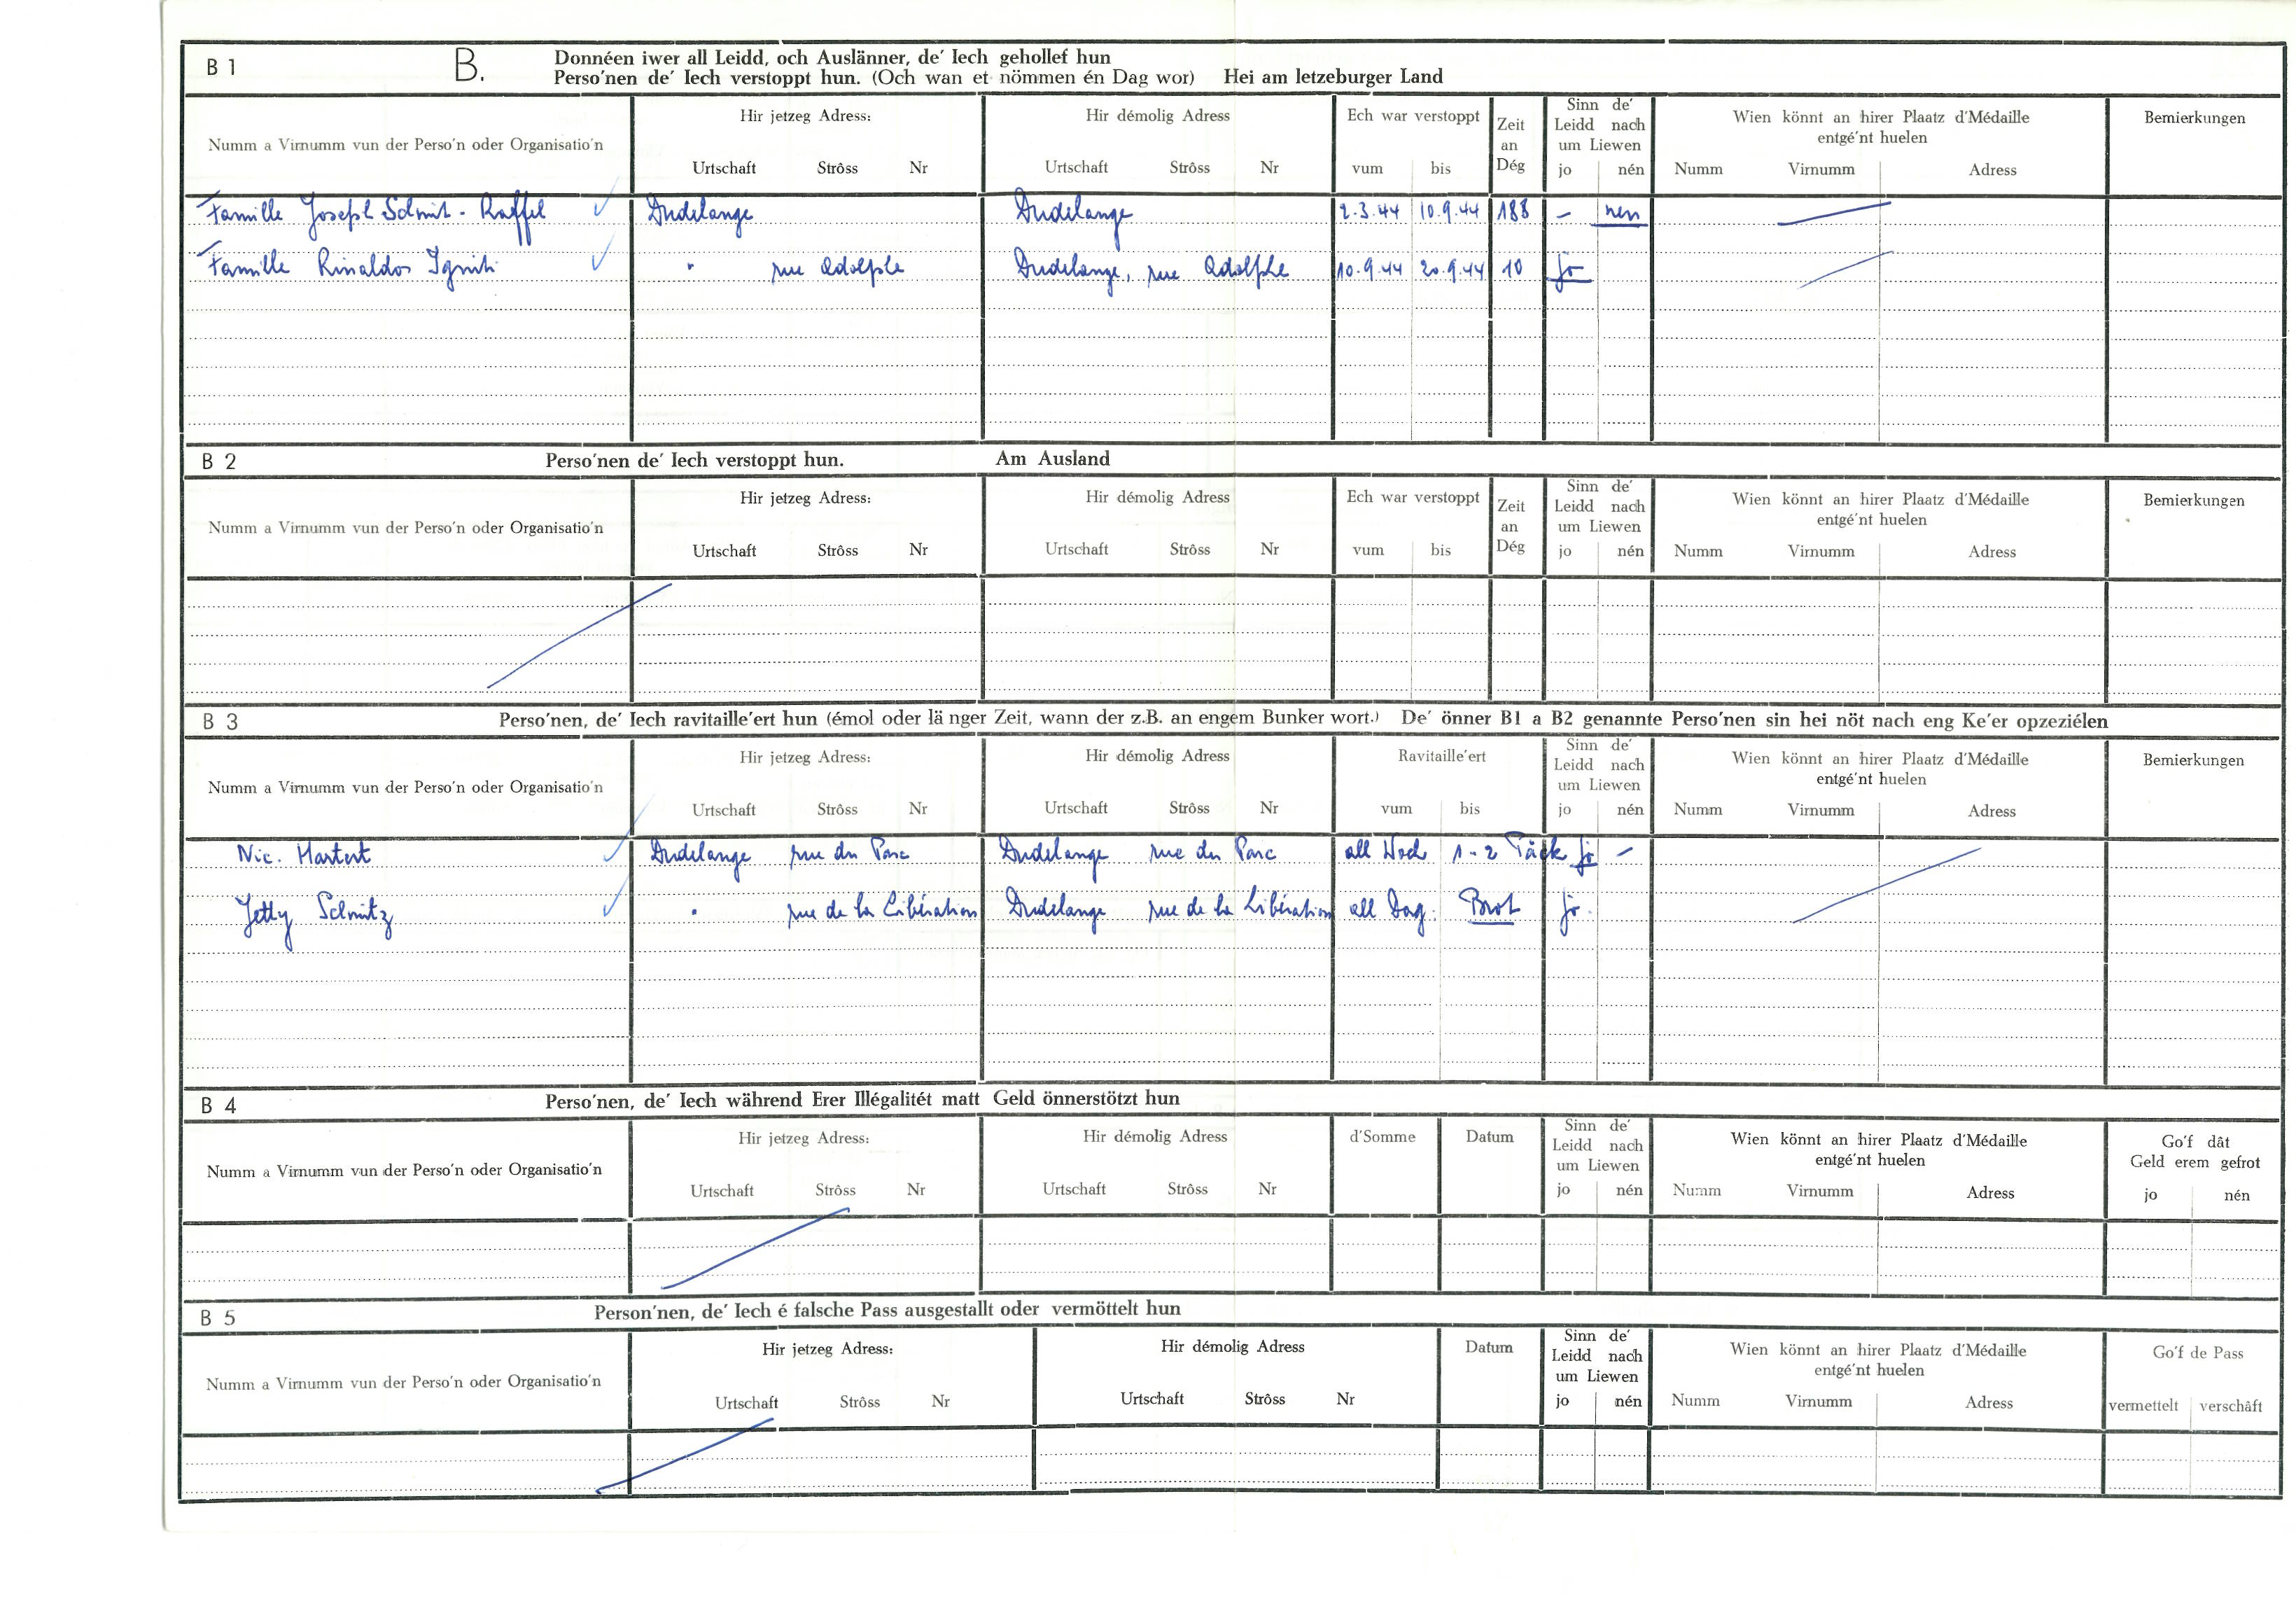 B 1
B.
Donnéen iwer all Leidd, och Auslänner, de' Iech gehollef hun
Perso'nen de' Iech verstoppt hun. (Och wan et nömmen én Dag wor) Hei am letzeburger Land
Numm a Virnumm vun der Perso'n oder Organisatio'n
Hir jetzeg Adress:
Urtschaft Strôss Nr
Hir démolig Adress
Urtschaft Strôss Nr
Ech war verstoppt
vum bis
Zeit
an
Dég
Sinn de'
Leidd nach
um Liewen
jo nén
Wien könnt an hirer Plaatz d'Médaille
entgé'nt huelen
Numm Virnumm Adress
Bemierkungen
Famille Joseph Schmit - Raffel Dudelange Dudelange 2.3.44 10.9.44 188 - nen
Famille Rinaldos Igniti " rue Adolphe Dudelange, rue Adolphe 10.9.44 20.9.44 10 jo
B 2
Perso'nen de' Iech verstoppt hun. Am Ausland
Numm a Virnumm vun der Perso'n oder Organisatio'n
Hir jetzeg Adress:
Urtschaft Strôss Nr
Hir démolig Adress
Urtschaft Strôss Nr
Ech war verstoppt
vum bis
Zeit
an
Dég
Sinn de'
Leidd nach
um Liewen
jo nén
Wien könnt an hirer Plaatz d'Médaille
entgé'nt huelen
Numm Virnumm Adress
Bemierkungen
B 3
Perso'nen, de' Iech ravitaille'ert hun (émol oder länger Zeit, wann der z.B. an engem Bunker wort.) De' önner B1 a B2 genannte Perso'nen sin hei nöt nach eng Ke'er opzeziélen
Numm a Virnumm vun der Perso'n oder Organisatio'n
Hir jetzeg Adress:
Urtschaft Strôss Nr
Hir démolig Adress
Urtschaft Strôss Nr
Ravitaille'ert
vum bis
Sinn de'
Leidd nach
um Liewen
jo nén
Wien könnt an hirer Plaatz d'Médaille
entgé'nt huelen
Numm Virnumm Adress
Bemierkungen
Nic. Hartert Dudelange rue du Parc Dudelange rue du Parc all Woch 1-2 Päck jo -
Jetty Schmitz " rue de la Libération Dudelange rue de la Libération all Dag. Brot jo.
B 4
Perso'nen, de' Iech während Erer Illégalitét matt Geld önnerstötzt hun
Numm a Virnumm vun der Perso'n oder Organisatio'n
Hir jetzeg Adress:
Urtschaft Strôss Nr
Hir démolig Adress
Urtschaft Strôss Nr
d'Somme
Datum
Sinn de'
Leidd nach
um Liewen
jo nén
Wien könnt an hirer Plaatz d'Médaille
entgé'nt huelen
Numm Virnumm Adress
Go'f dât
Geld erem gefrot
jo nén
B 5
Person'nen, de' Iech é falsche Pass ausgestallt oder vermöttelt hun
Numm a Virnumm vun der Perso'n oder Organisatio'n
Hir jetzeg Adress:
Urtschaft Strôss Nr
Hir démolig Adress
Urtschaft Strôss Nr
Datum
Sinn de'
Leidd nach
um Liewen
jo nén
Wien könnt an hirer Plaatz d'Médaille
entgé'nt huelen
Numm Virnumm Adress
Go'f de Pass
vermettelt verschâft